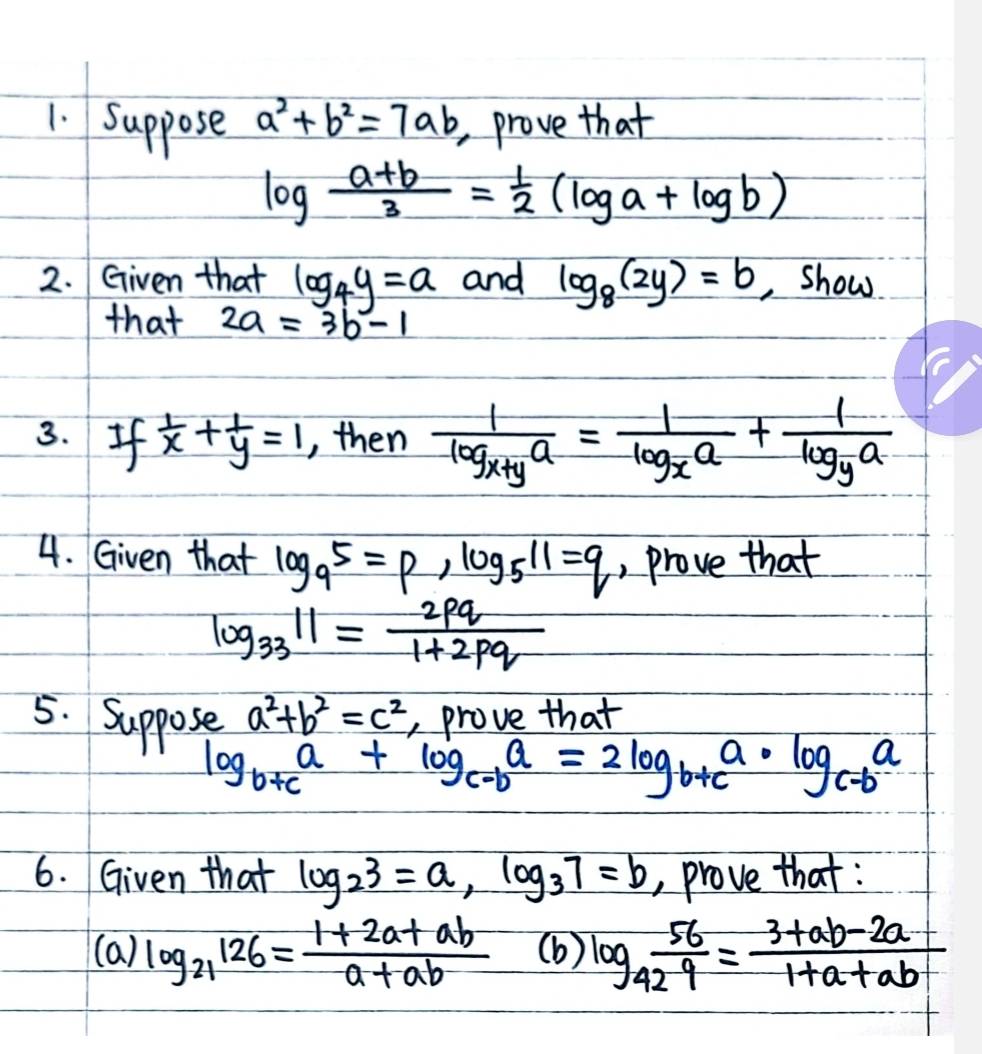 1. Suppose a² + b² = 7ab, prove that
log (a+b)/3 = 1/2 (log a + log b)
2. Given that log₄y = a and log₈(2y) = b, show
that 2a = 3b - 1
3. If 1/x + 1/y = 1, then 1/(logₓ₊ᵧ a) = 1/(logₓ a) + 1/(logᵧ a)
4. Given that log₉5 = p, log₅11 = q, prove that
log₃₃11 = 2pq/(1+2pq)
5. Suppose a² + b² = c², prove that
log_(b+c) a + log_(c-b) a = 2 log_(b+c) a · log_(c-b) a
6. Given that log₂3 = a, log₃7 = b, prove that:
(a) log₂₁126 = (1+2a+ab)/(a+ab) (b) log₄₂ 56/9 = (3+ab-2a)/(1+a+ab)